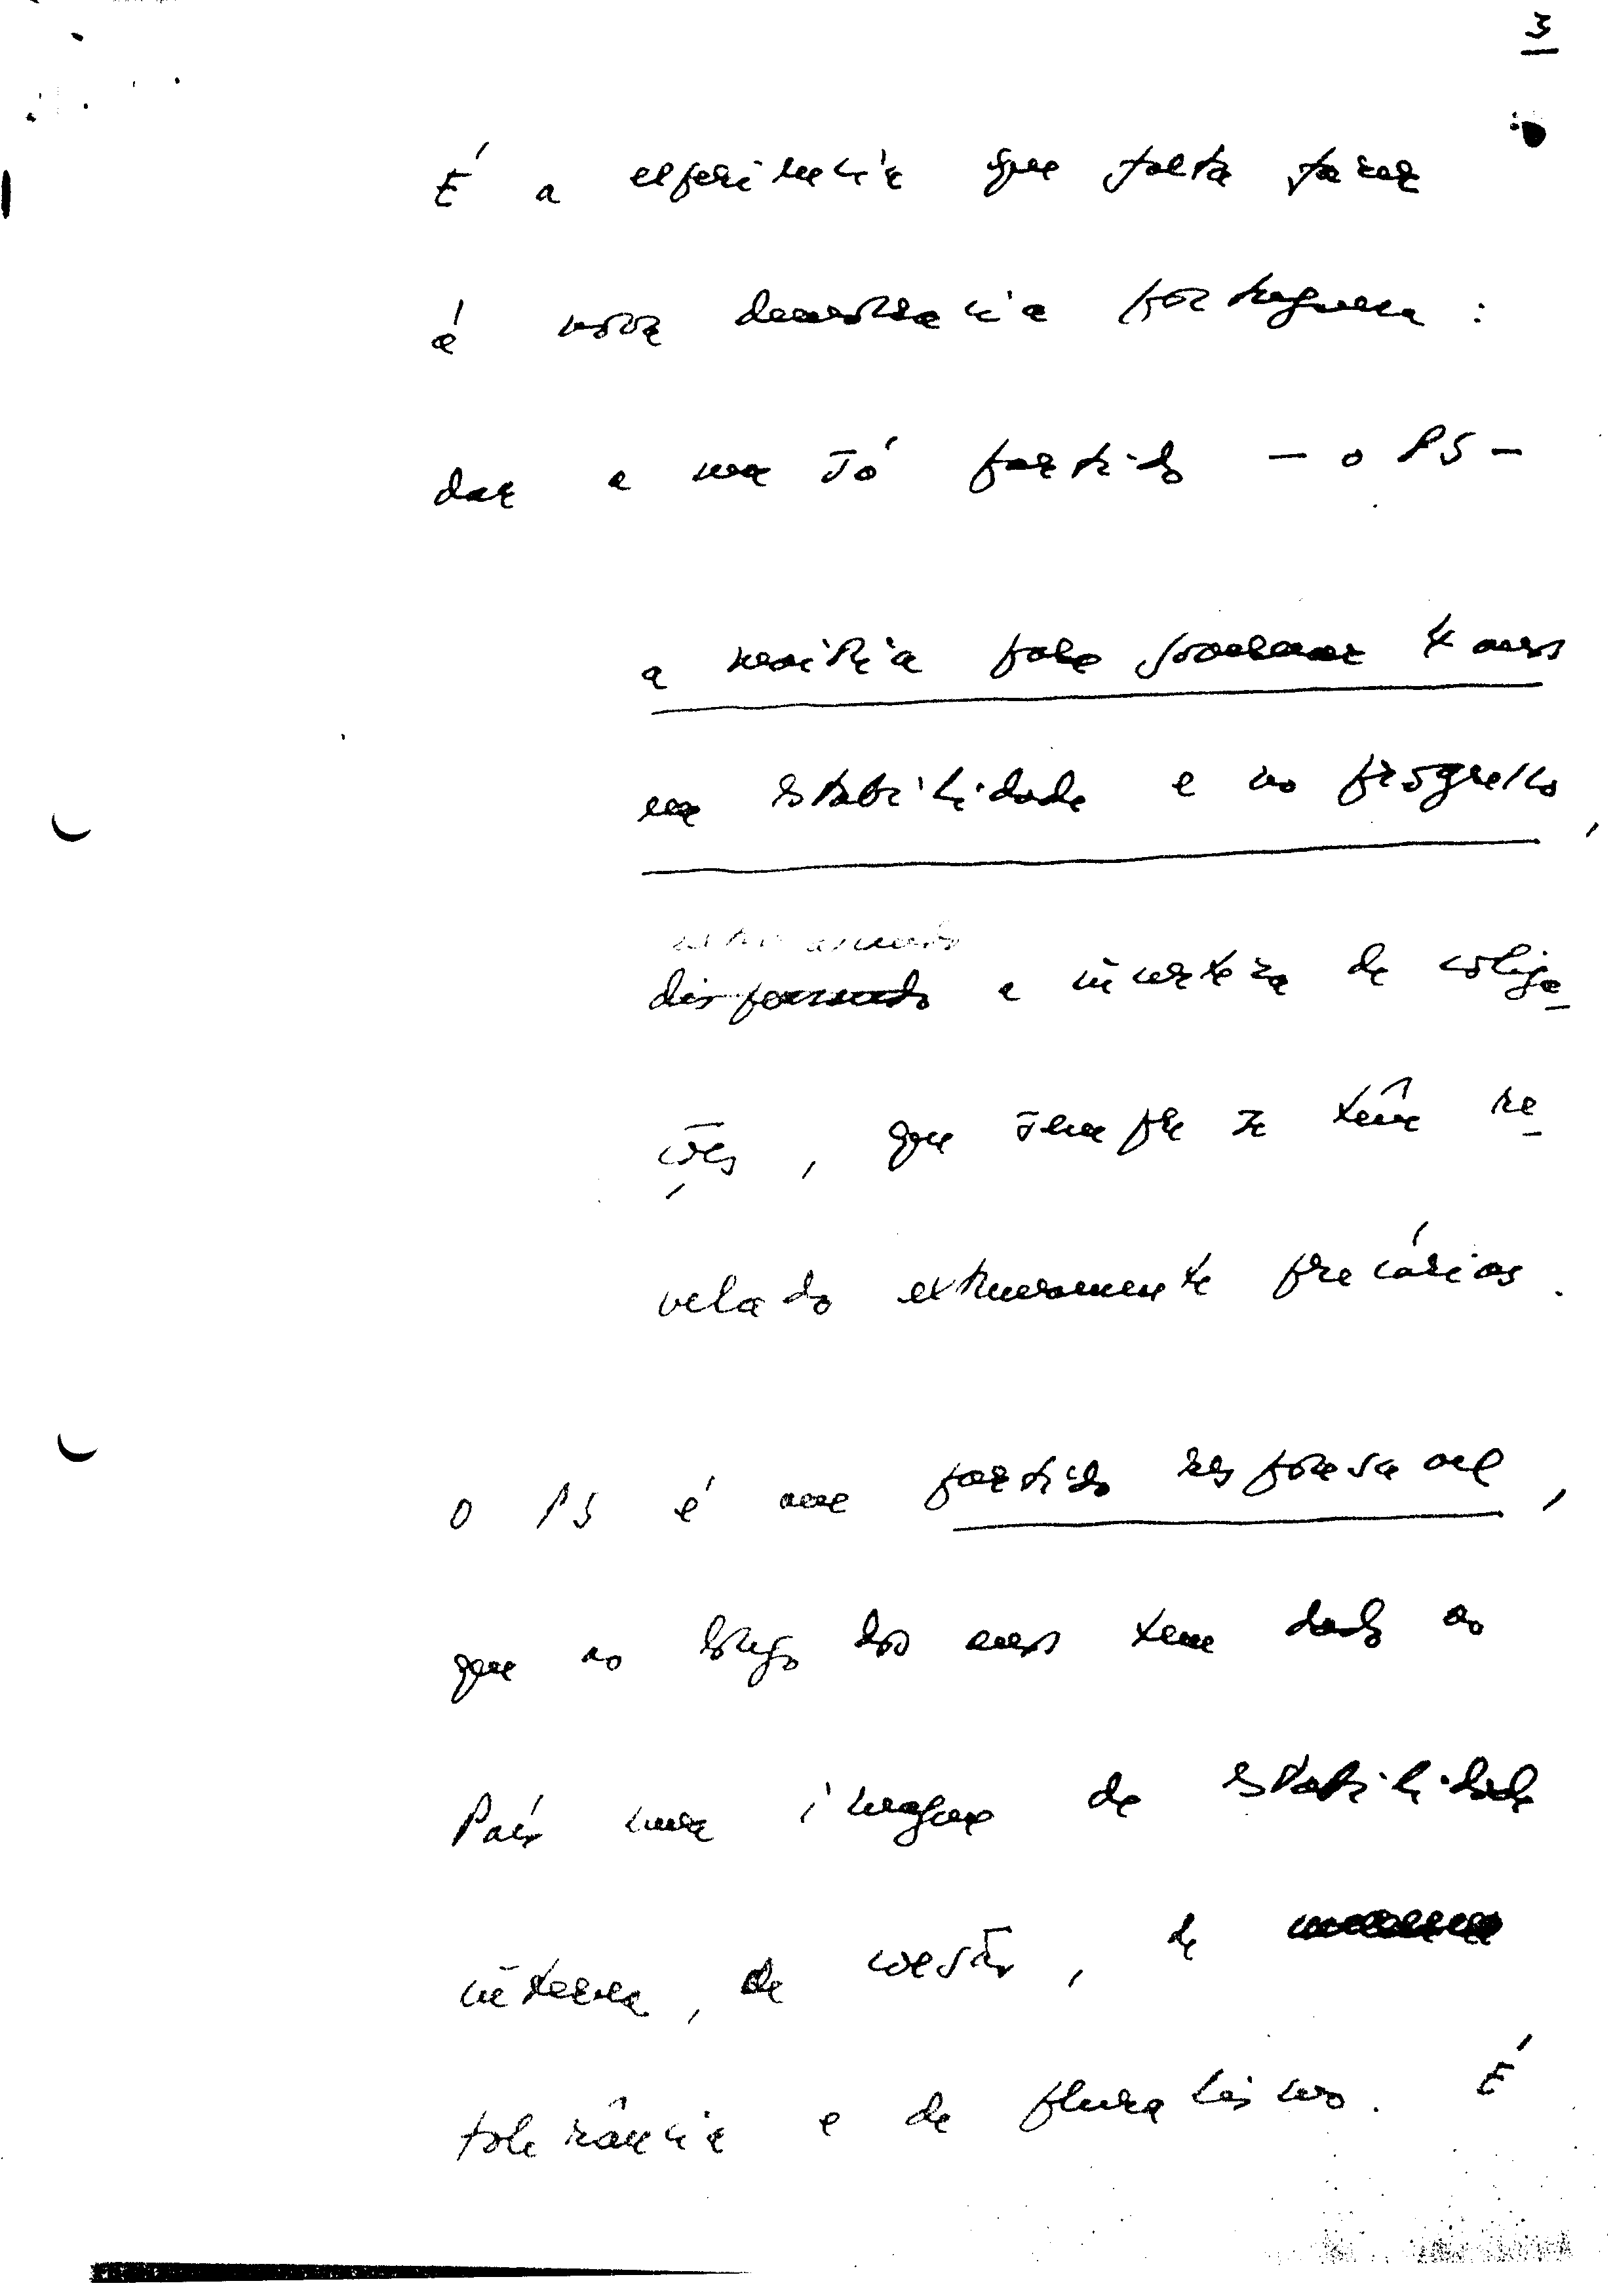 3
É a experiência que falta fazer
à nova democracia portuguesa :
dar a um só partido — o PS —
a maioria para governar 4 anos
na estabilidade e no progresso,
a incerteza de coliga-
ções, que sempre se têm re-
velado extremamente precárias.
O PS é um partido responsável,
que ao longo dos anos tem dado ao
País uma imagem de estabilidade
interna, de coesão, de
tolerância e de pluralismo. É